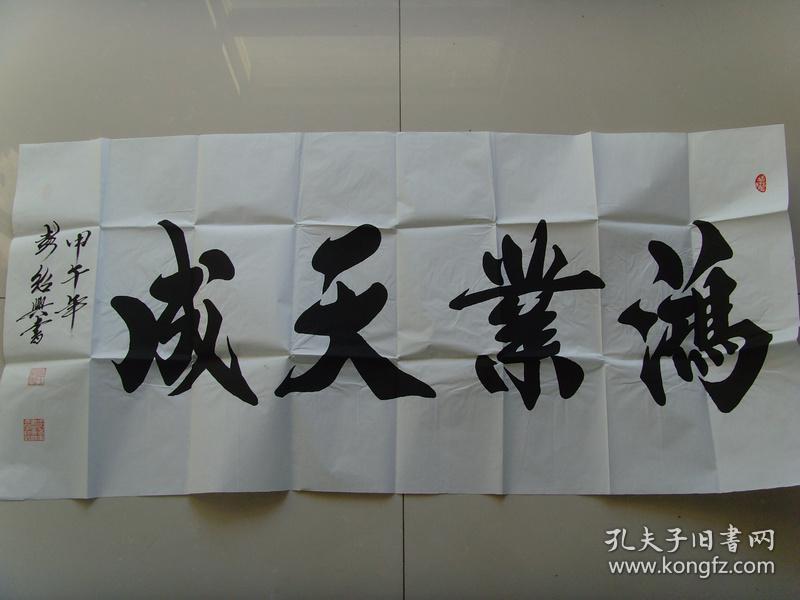 鴻業天成
甲午年
彭紹興書
孔夫子旧書网
www.kongfz.com